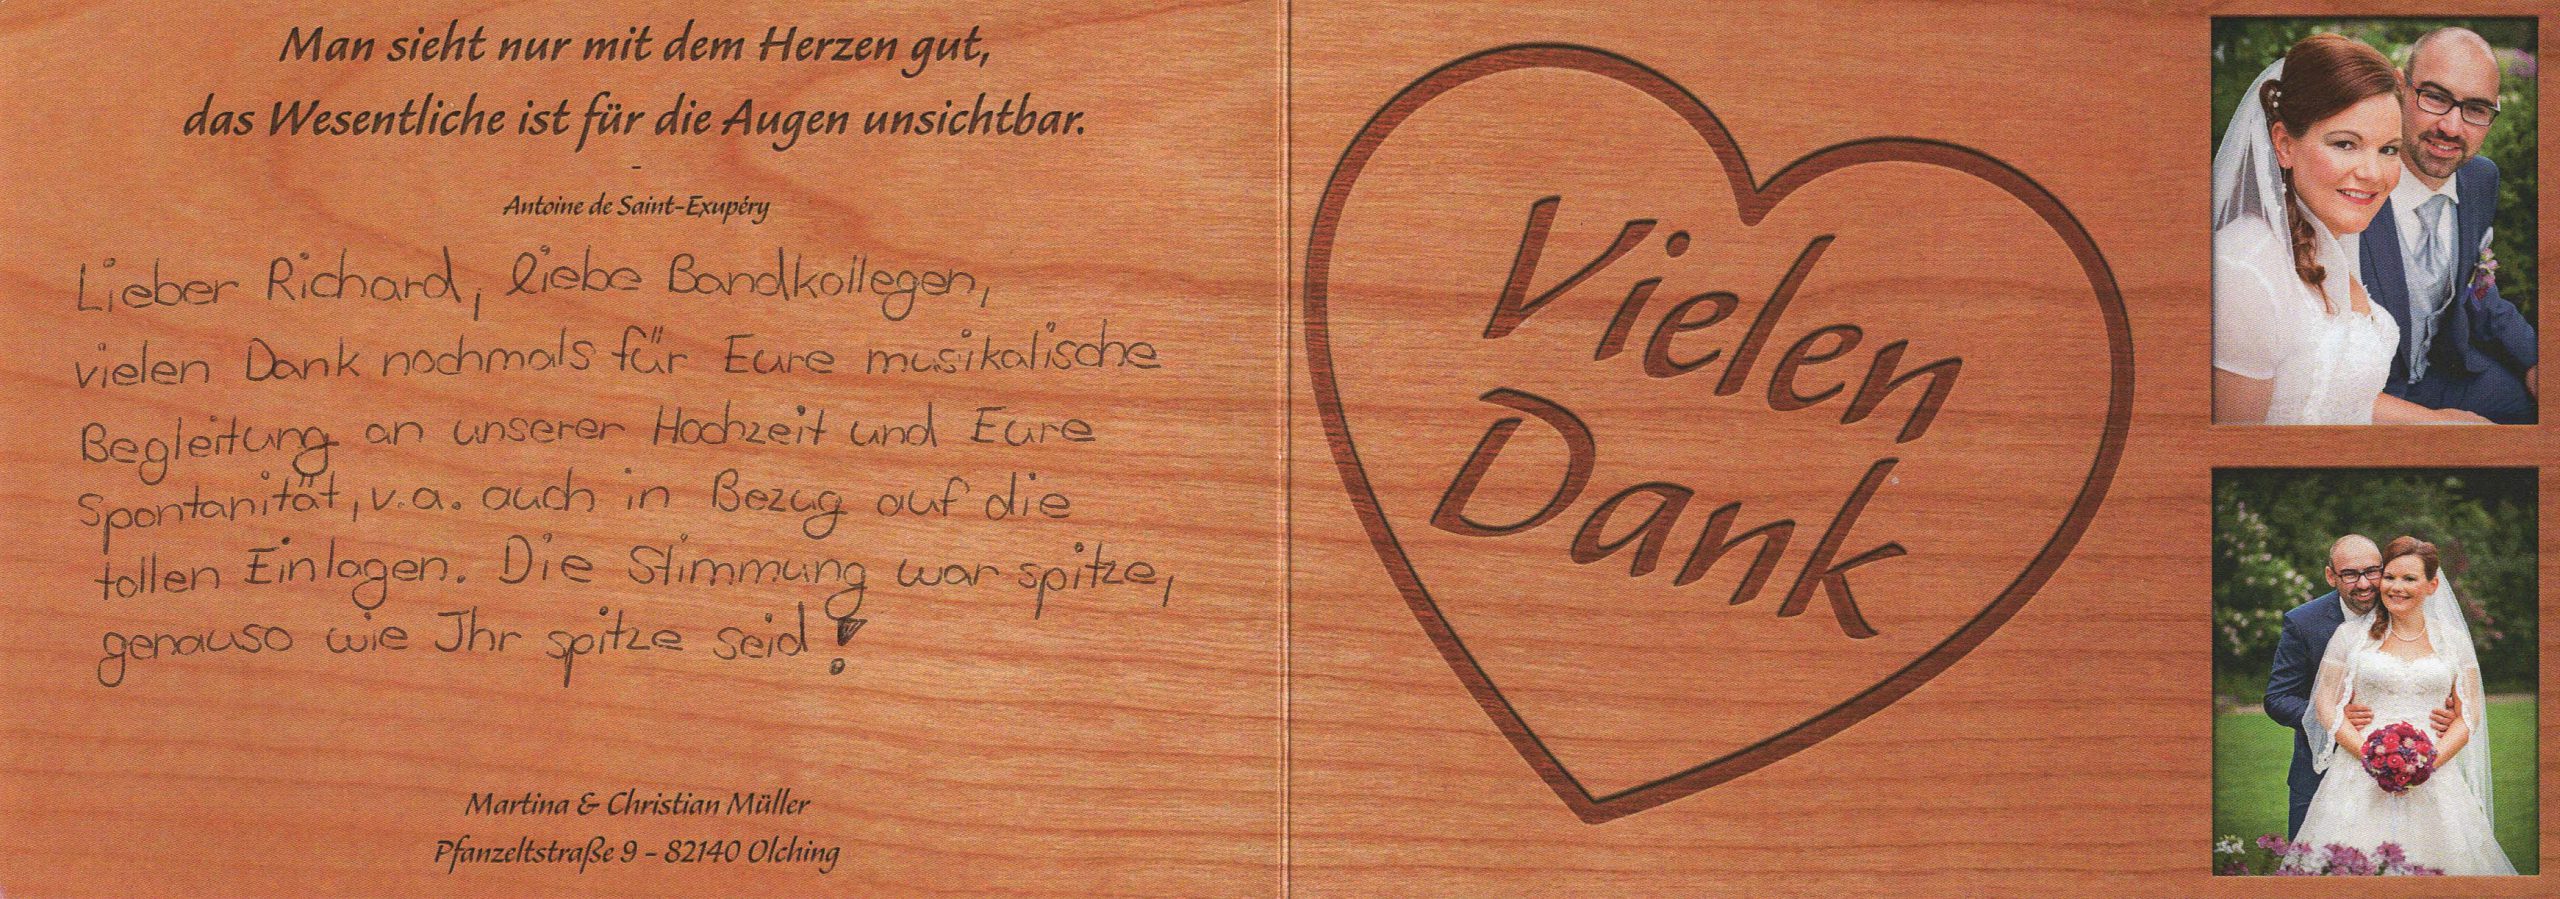 Man sieht nur mit dem Herzen gut,
das Wesentliche ist für die Augen unsichtbar.
-
Antoine de Saint-Exupéry
Lieber Richard, liebe Bandkollegen,
vielen Dank nochmals für Eure musikalische
Begleitung an unserer Hochzeit und Eure
Spontanität, v.a. auch in Bezug auf die
tollen Einlagen. Die Stimmung war spitze,
genauso wie Ihr spitze seid!
Martina & Christian Müller
Pfanzeltstraße 9 - 82140 Olching
Vielen
Dank